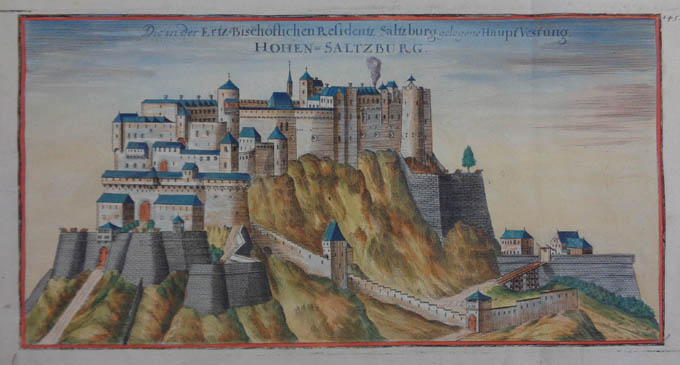 Die in der Ertz-Bischöflichen Residentz Saltzburg gelegene Haupt Vestung.
HOHEN=SALTZBURG.